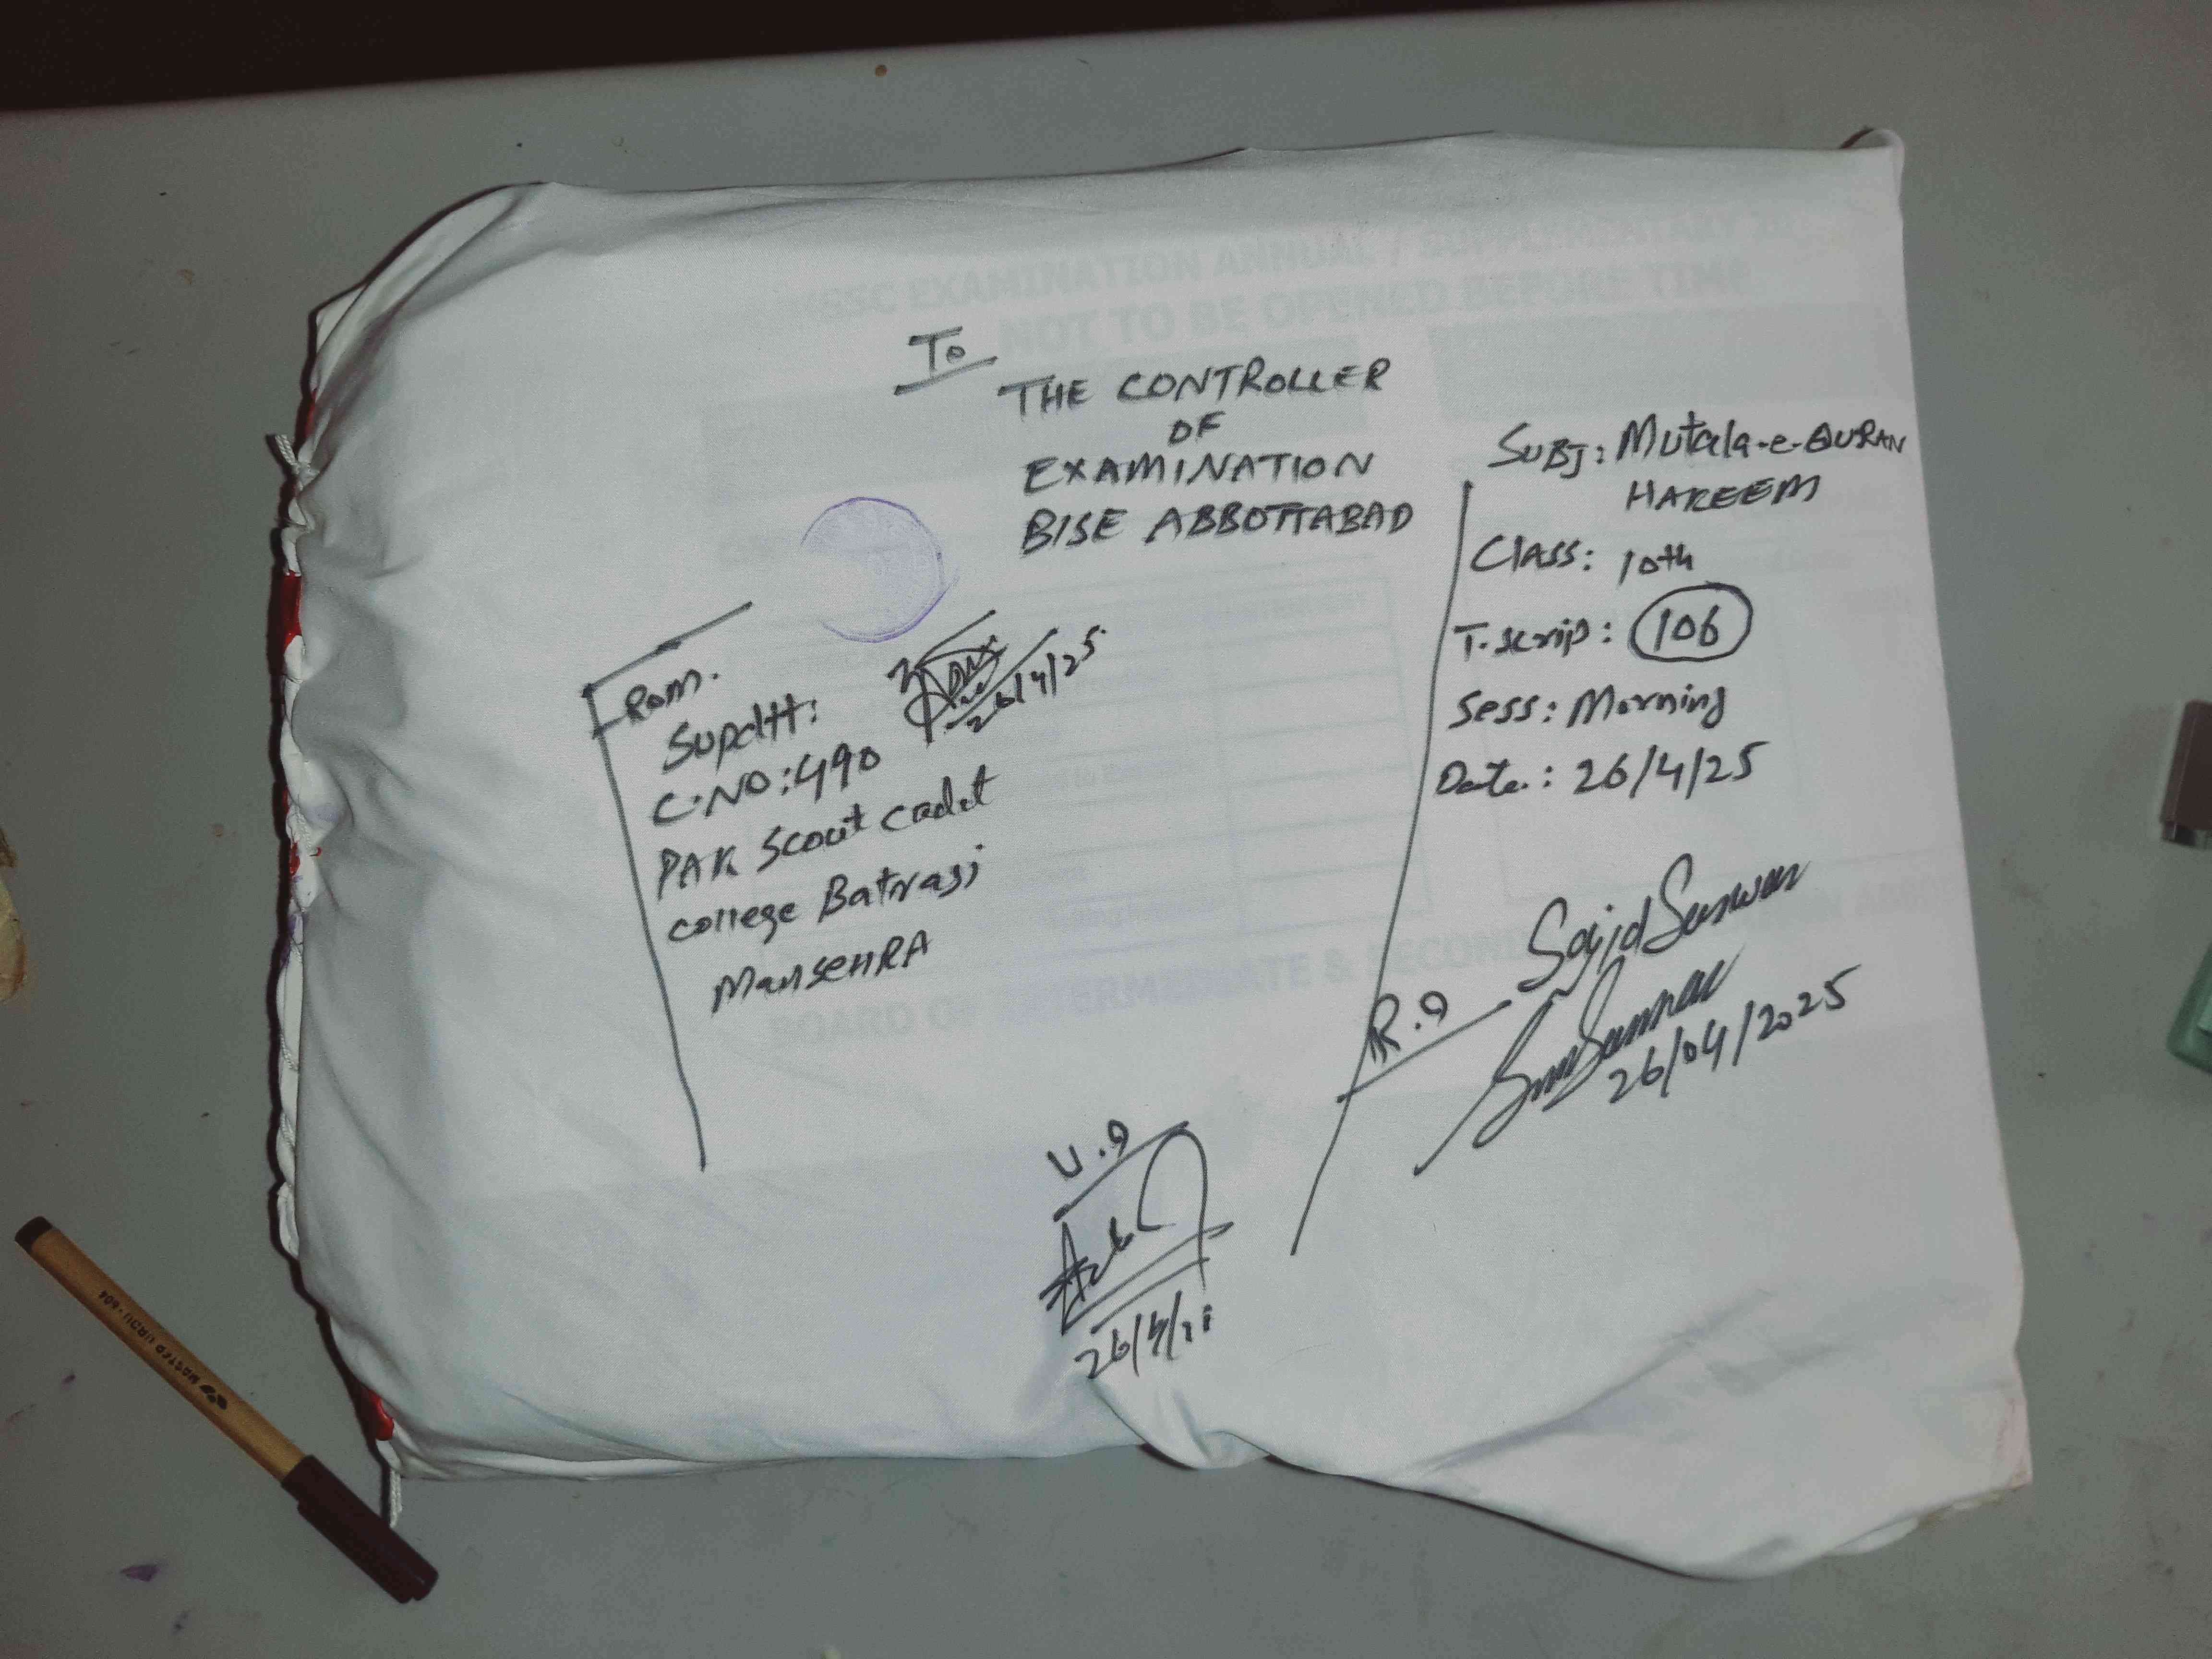 SSC EXAMINATION ANNUAL / SUPPLEMENTARY
NOT TO BE OPENED BEFORE TIME
To
THE CONTROLLER
OF
EXAMINATION
BISE ABBOTTABAD
SUBJ: Mutala-e-QURAN
HAKEEM
Class: 10th
T.scrip: 106
Sess: Morning
Date.: 26/4/25
Rom.
Supdtt:
26/4/25
C.NO:490
PAK Scout Cadet
college Batrasi
MansehRA
R.9
Sajid Sarwar
26/04/2025
U.9
BOARD OF INTERMEDIATE & SECOND
MASTER URDU-604